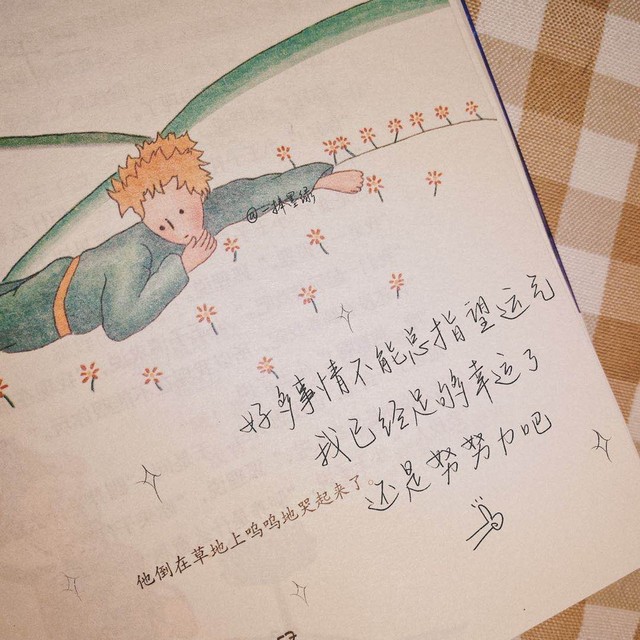 @一抹墨绿
好多事情不能总指望运气
我已经足够幸运了
还是努努力吧
他倒在草地上呜呜地哭起来了。